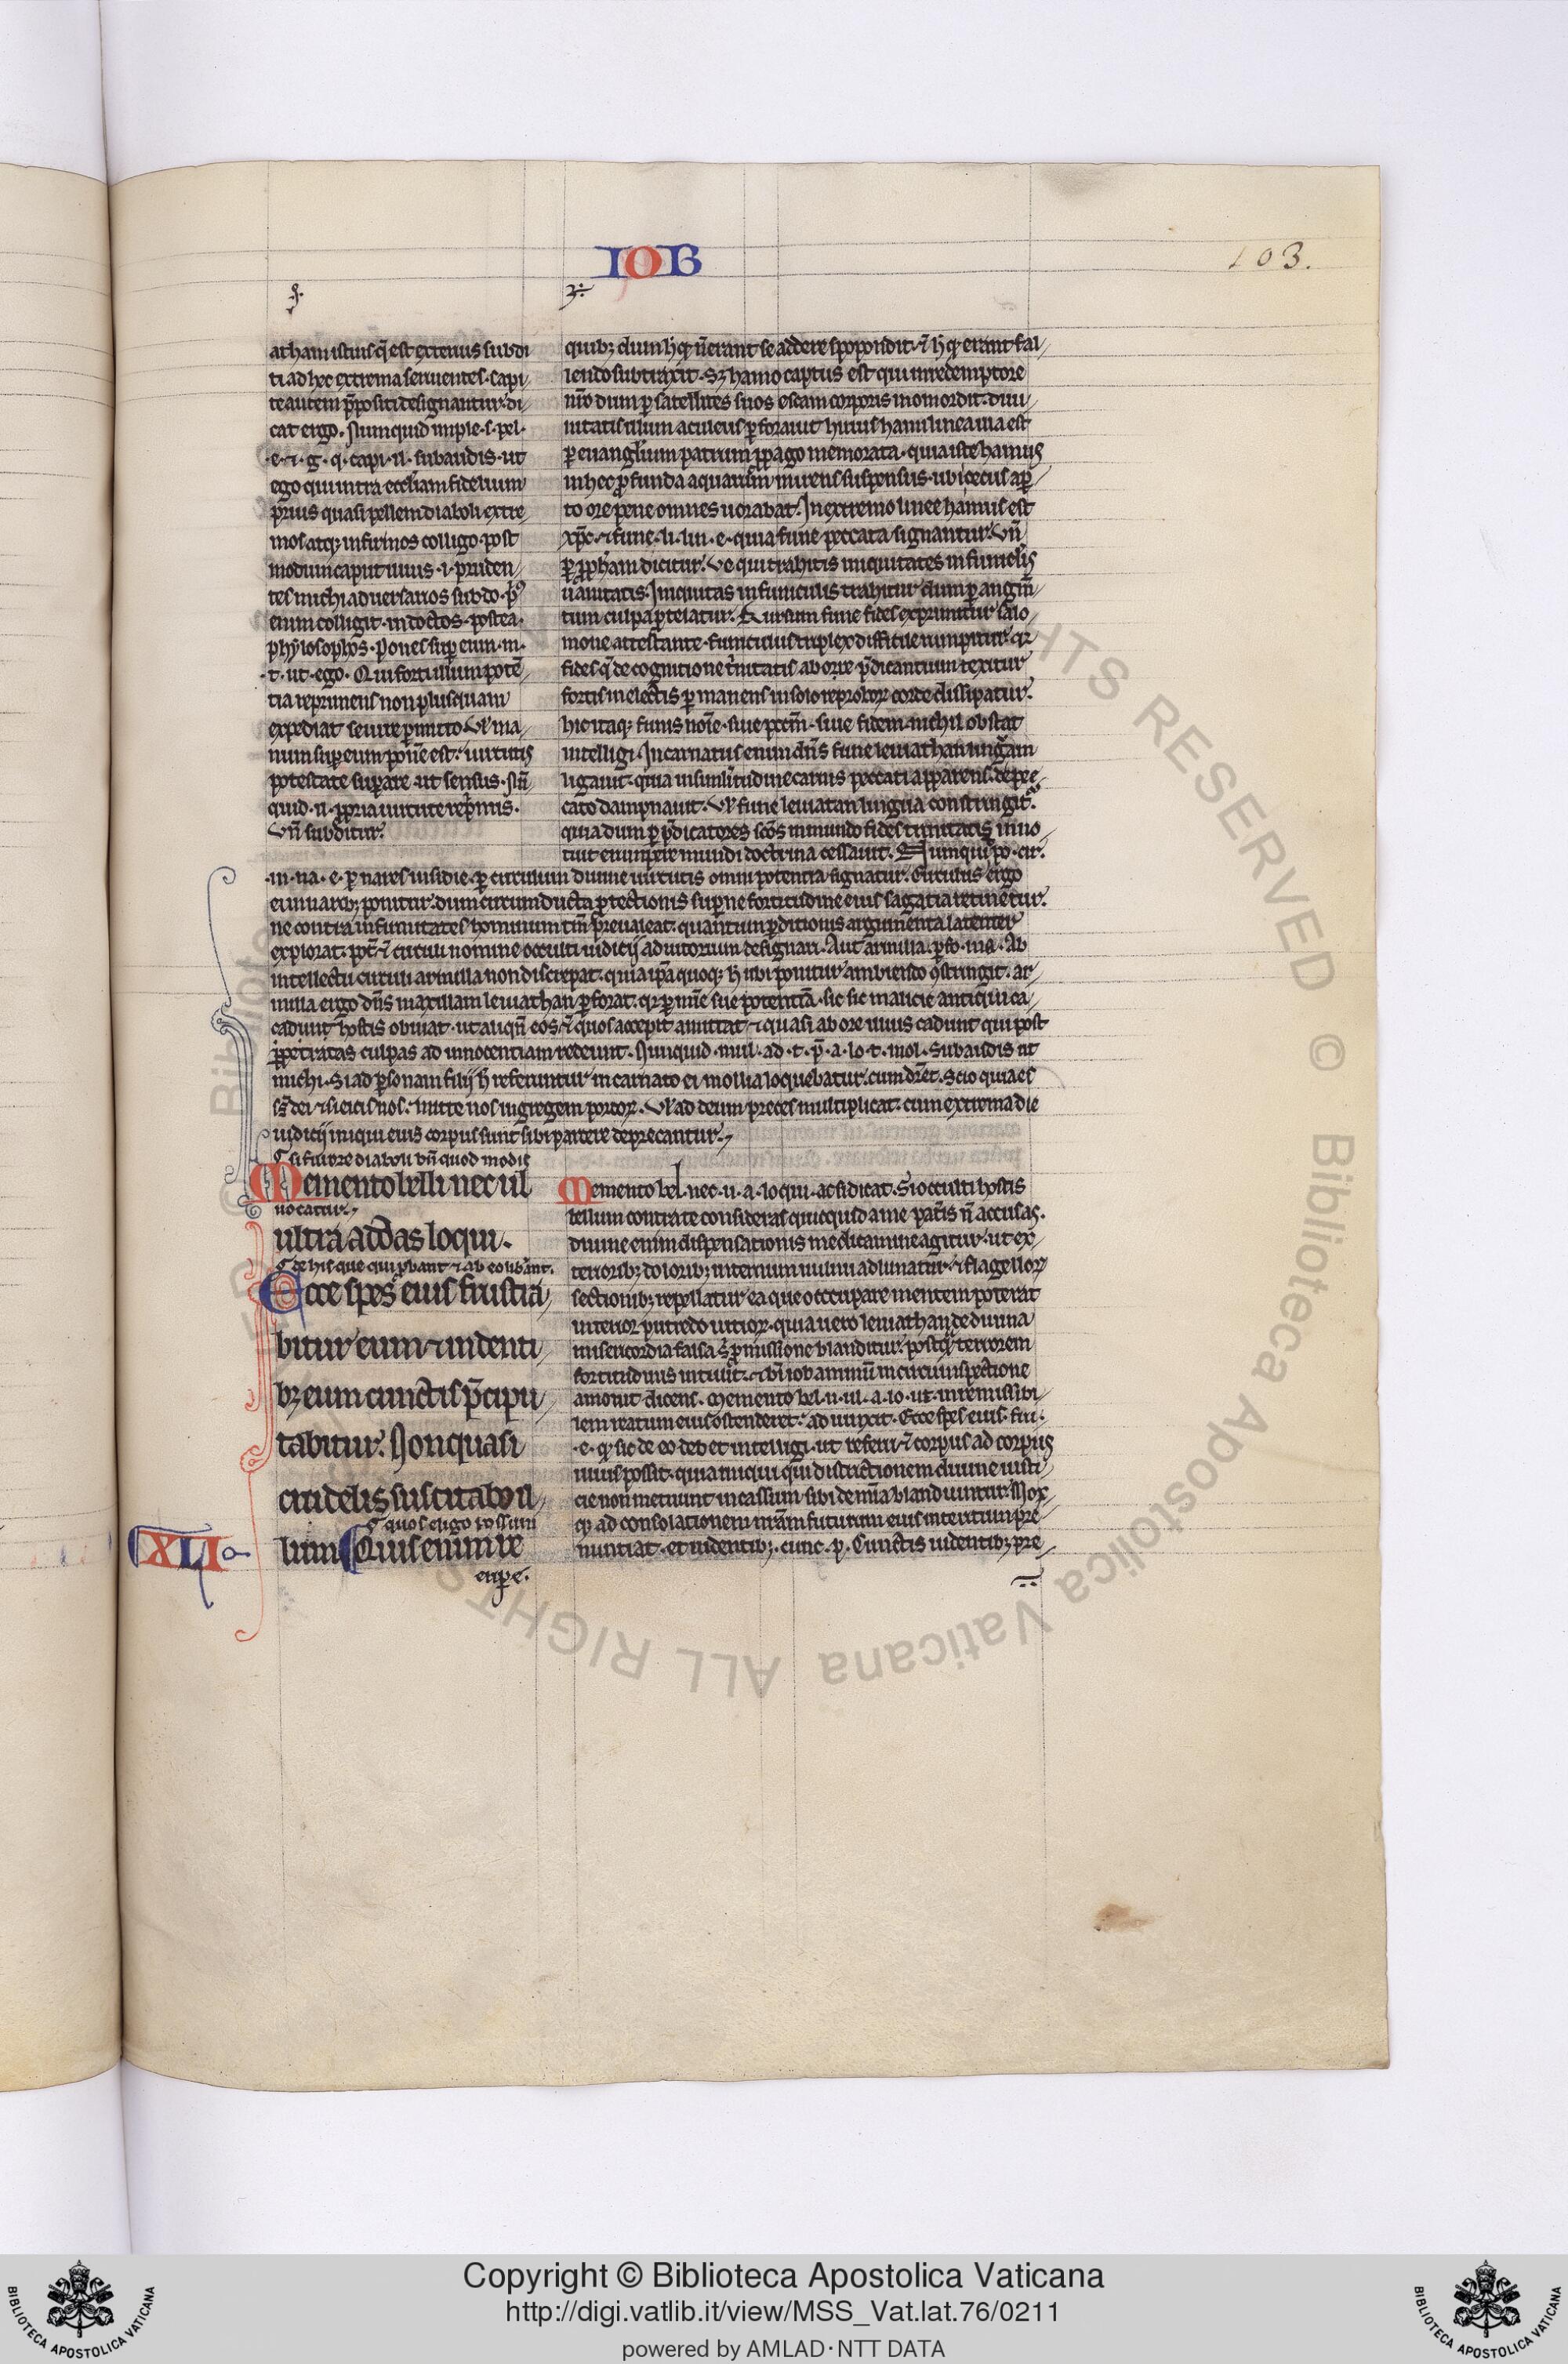 IOB
103.
athamistius q̄ est extenus subdi
ti ad hec extrema seruientes. capi
te autem p̄positi designantur. di
cat ergo. Numquid imple .s. pel.
.e. ⁊ .g. q. capi. il. subaudis. ut
ego qui intra eccl̄iam fidelium
prius quasi pellem diaboli extre
mos atq; infirmos colligo. post
modum caput illius .i. pruden
tes michi aduersarios subdo.
enim colligit indoctos. postea
phylosophos. Pones sup eum. m.
t. ut ego. Qui forti illum potē
tia reprimens non plusquam
expediat seuire permitto. Vl' ma
num sup eum pone est. uirtutis
potestate supare. ut sensus.
quid .n. ꝓpria uirtute rep̄mis.
Vn̄ subditur.
quib; dum h̄ q̄ n̄ erant se addere spopondit. ⁊ h̄ q̄ erant fal
lendo subtraxit. Sz hamo captus est qui in redemptore
nr̄o dum p satellites suos escam corporis momordit. diui
nitatis illum aculeus pforauit huius hami linea illa est
p euangl̄ium patrum ꝓpago memorata. quia iste hamus
in hec profunda aquarum mitens suspensus. ubi cetus ap
to ore pene omnes uorabat. In extremo linee hamus est
xp̄c. ⁊ fune. li. lin. e. quia fune peccata signantur. Vn̄
p ꝓph̄am dicitur. Ve qui trahitis iniquitates in funiculis
uanitatis. Iniquitas in funiculis trahitur dum p augm̄
tum culpa ptelatur. Rursum fune fides exprimitur salo
mone attestante. funiculus triplex difficile rumpitur. qr
fides q̄ de cognitione t̄nitatis ab ore p̄dicantium texitur
fortis in electis pmanens in solo reprobor corde dissipatur.
hic itaq; funis noīe. siue pctm̄. siue fidem nichil obstat
intelligi. Incarnatus enim dn̄s fune leuiathan linguam
ligauit. quia in similitudine carnis peccati apparens. de pec
cato dampnauit. Vl' fune leuiatan lingua constringit.
quia dum p p̄dicatores sc̄os in mundo fides trinitatis inno
tuit eum pire mundi doctrina cessauit. Numqui po. cir.
.in. na. e. p nares insidie. p circulum diuine uirtutis omnipotentia signatur. Circulus ergo
eius narib; ponitur dum circumducta ptectionis supne fortitudine eius sagatia retinetur.
ne contra infirmitates hominum tm̄ preualeat. quantum pditionis argumenta latenter
explorat. pot̄ ⁊ circuli nomine occulti iudicij adiutorium designari. Aut armilla. pfo. ma. Ab
intellectu circuli armilla non discrepat. quia ipa quoq; h ubi ponitur ambiendo ꝯstringit. ar
milla ergo dn̄s maxillam leuiathan pforat. qr p mīe sue potentiā. sic sic malicie antiqui ca
cadunt hostis obuiat. ut aliqn̄ eos ⁊ quos accepit amittat. ⁊ quasi ab ore illius cadunt qui post
ppetratas culpas ad innocentiam redeunt. Nunquid. mul. ad. t. p̄. a. lo. t. mol. Subaudis ut
michi. Si ad psonam filij h̄ referuntur incarnato ei mollia loquebatur. cum dr̄et. Scio quia es
sc̄s dei. ⁊ si eicis nos. mitte nos in gregem porcor. Vl' ad deum preces multiplicat. cum extrema die
iudicij iniqui eius corpus sunt sibi parcere deprecantur.
si furore diaboli vn̄ quod modis
Memento belli nec ul
no catur.
ultra addas loqui.
de his que qui pbant ⁊ ab eo libant.
Ecce spes eius frustra
bitur eum ⁊ uidenti
bz eum cunctis p̄cipi
tabitur. Non quasi
crudelis suscitabo il
quos eligo possum
XLI
lum Quis enim re
eripe.
Memento bel. nec. u. a. loqui. ac si dicat. Si occulti hostis
bellum contra te consideras quicquid a me pateris n̄ accusas.
Diuine enim dispensationis medicamine agitur. ut ex
teriorib; doloribz internum uulnus adunatur. ⁊ flagellor
sectionibz repellatur ea que occupare mentem poterat
interior putredo uitior. quia uero leuiathan de diuina
misericordia falsa s̄ promissione blanditur. postq̄ terrorem
fortitudinis intulit. ⁊ bt̄i iob animū in circumspectione
amouit dicens. Memento bel. n. ul. a. lo. ut inremissibi
lem reatum eius ostenderet. adiunxit. Ecce spes eius. fru.
.e. q̄ sic de eo debet intelligi. ut referri ⁊ corpus ad corpus
illius possit. quia iniqui qui districtionem diuine iusti
cie non metuunt incassum sibi de mīa blandiuntur. Mox
q̄ ad consolationem nr̄am futurum eius interitum pre
nuntiat. et uidentibz. cunc. p. Cunctis uidentibz pre
Copyright © Biblioteca Apostolica Vaticana
http://digi.vatlib.it/view/MSS_Vat.lat.76/0211
powered by AMLAD·NTT DATA
BIBLIOTECA APOSTOLICA VATICANA
BIBLIOTECA APOSTOLICA VATICANA
© Biblioteca Apostolica Vaticana ALL RIGHTS RESERVED